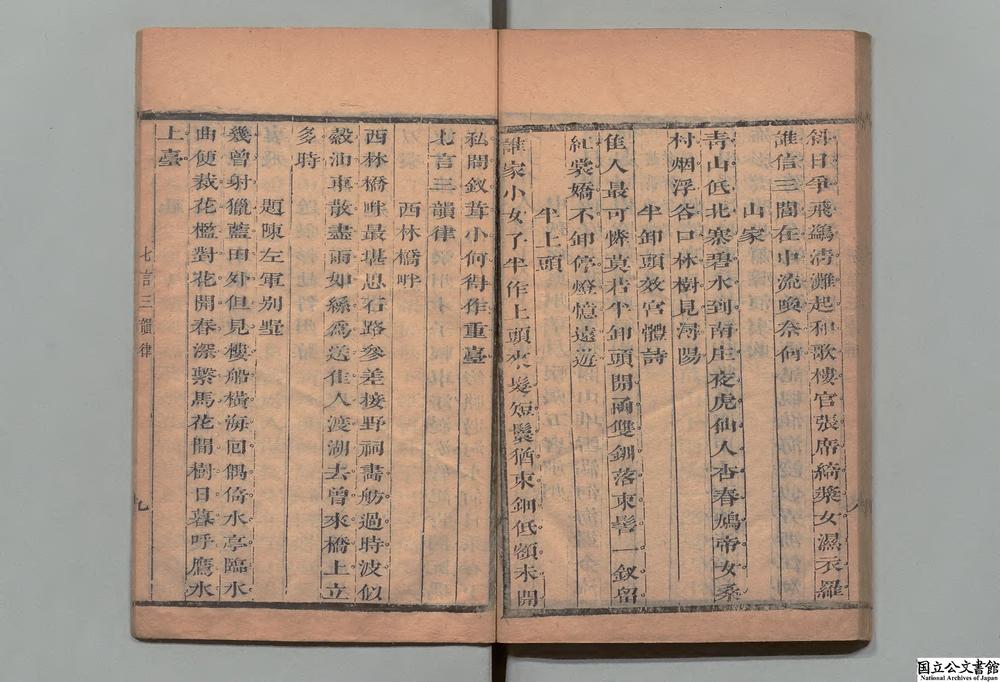 斜日爭飛鷁清灘起和歌樓官張席綺槳女濕衣羅
誰信三閭在中流喚奈何
山家
靑山低北寨碧水到南庄夜虎仙人杏春鳩帝女桑
村烟浮谷口林樹見潯陽
半卸頭效宮體詩
佳人最可憐莫若半卸頭開函雙釧落束髻一釵留
紅裳嬌不卸停燈憶遠遊
半上頭
誰家小女子半作上頭來髮短鬟猶束鈿低額未開
私閒釵茸小何得作重臺
七言三韻律
西林橋畔
西林橋畔最堪思石路參差接野祠畵舫過時波似
縠油車散盡雨如絲爲送佳人渡湖去曾來橋上立
多時
題陳左軍别墅
幾曾射獵藍田外但見樓船橫海囘偶倚水亭臨水
曲便裁花檻對花開春深繫馬花間樹日暮呼鷹水
上臺
七言三韻律
九
国立公文書館
National Archives of Japan